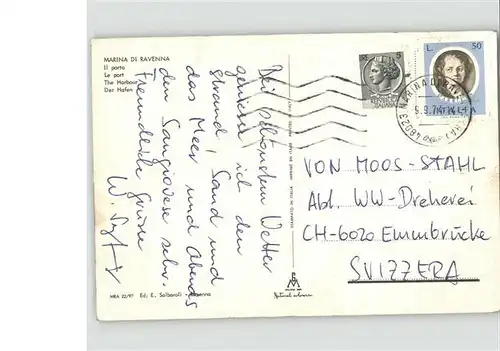 MARINA DI RAVENNA
Il porto
Le port
The Harbour
Der Hafen
Bei schönstem Wetter
geniesse ich den
Strand! Sand und
das Meer und Abends
den Sangiovese sehr.
Freundliche Grüsse
W.
L. 50
48023 MARINA DI RA
VON MOOS-STAHL
Abl. WW-Dreherei
CH-6020 Emmbrücke
SVIZZERA
MRA 22/97 Ed: E. Salbaroli - Ravenna